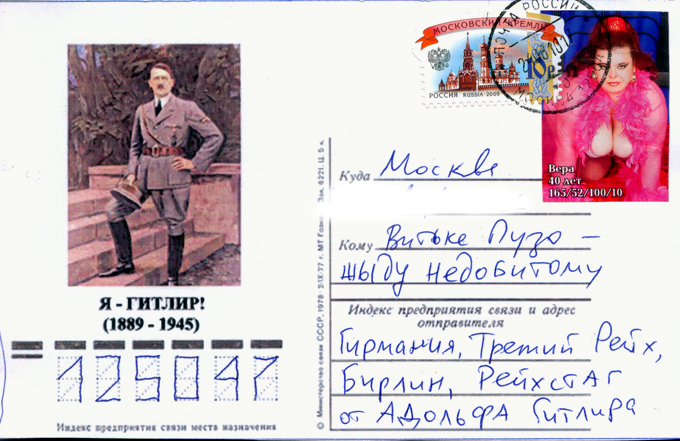 Я - ГИТЛИР!
(1889 - 1945)
125047
Индекс предприятия связи места назначения
© Министерство связи СССР, 1978
Зак. 6221. Ц. 5 к.
МОСКОВСКИЙ КРЕМЛЬ
РОССИЯ RUSSIA·2009
ПОЧТА РОССИИ
Вера
40 лет
165/52/100/10
Куда Москве
Кому Витьке Пузо –
жыду недобитому
Индекс предприятия связи и адрес
отправителя
Гирмания, Третий Рейх,
Бирлин, Рейхстаг
от Адольфа Гитлира